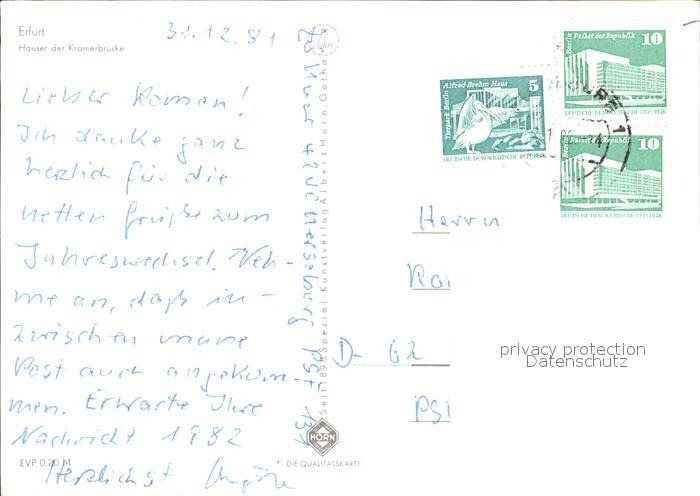 Erfurt
Häuser der Krämerbrücke
31.12.81
Lieber Roman!
Ich danke ganz
herzlich für die
netten Grüße zum
Jahreswechsel. Neh-
me an, daß in-
zwischen meine
Post auch angekom-
men. Erwarte Ihre
Nachricht 1982
Herzlichst
EVP 0.20 M
4200 Merseburg PSF 137
Seit 1898 Spezial-Kunstverlag Albert Horn Gotha
HORN
DIE QUALITÄTSKARTE
Tierpark Berlin
Alfred-Brehm-Haus
5
DEUTSCHE DEMOKRATISCHE REPUBLIK
Berlin Palast der Republik
10
Berlin Palast der Republik
10
DEUTSCHE DEMOKRATISCHE REPUBLIK
Herrn
D- 62
privacy protection
Datenschutz